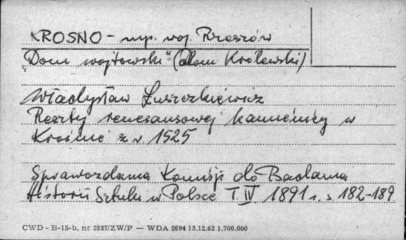 KROSNO - mp. woj. Rzeszów
"Dom wojtowski" (Dom Królewski)
Władysław Łuszczkiewicz
Reszty renesansowej kamienicy w
Krośnie z r. 1525
Sprawozdania Komisji do Badania
Historii Sztuki w Polsce T IV 1891 r. s 182-189
CWD - B-15-b, nr 2827/ZW/P — WDA 2094 13.12.62 1,700,000